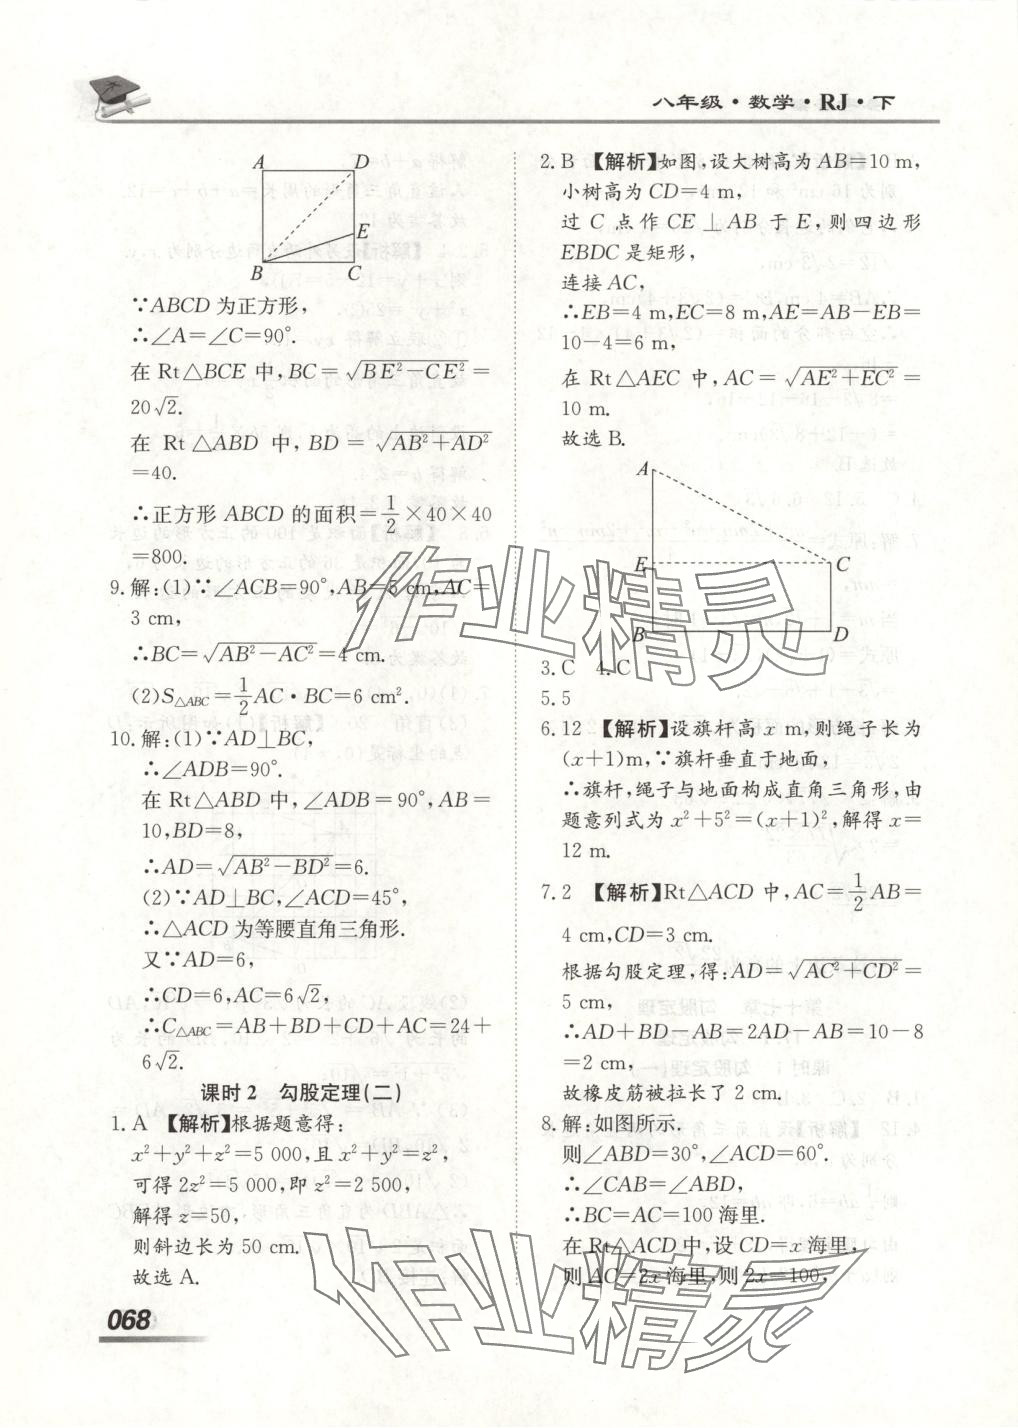 八年级·数学·RJ·下
A
D
E
B
C
∵ABCD为正方形,
∴∠A=∠C=90°.
在Rt△BCE中,BC=√(BE²-CE²)=
20√2.
在 Rt △ABD 中, BD = √(AB²+AD²)
=40.
∴正方形ABCD的面积=1/2×40×40
=800.
9.解:(1)∵∠ACB=90°,AB=5 cm,AC=
3 cm,
∴BC=√(AB²-AC²)=4 cm.
(2)S△ABC=1/2AC·BC=6 cm².
10.解:(1)∵AD⊥BC,
∴∠ADB=90°.
在Rt△ABD中,∠ADB=90°,AB=
10,BD=8,
∴AD=√(AB²-BD²)=6.
(2)∵AD⊥BC,∠ACD=45°,
∴△ACD为等腰直角三角形.
又∵AD=6,
∴CD=6,AC=6√2,
∴C△ABC=AB+BD+CD+AC=24+
6√2.
课时2 勾股定理(二)
1.A 【解析】根据题意得:
x²+y²+z²=5 000,且x²+y²=z²,
可得2z²=5 000,即z²=2 500,
解得z=50,
则斜边长为50 cm.
故选A.
068
2.B 【解析】如图,设大树高为AB=10 m,
小树高为CD=4 m,
过C点作CE⊥AB于E,则四边形
EBDC是矩形,
连接AC,
∴EB=4 m,EC=8 m,AE=AB-EB=
10-4=6 m,
在 Rt△AEC 中,AC=√(AE²+EC²)=
10 m.
故选B.
A
E
C
B
D
3.C 4.C
5.5
6.12 【解析】设旗杆高x m,则绳子长为
(x+1)m,∵旗杆垂直于地面,
∴旗杆,绳子与地面构成直角三角形,由
题意列式为x²+5²=(x+1)²,解得x=
12 m.
7.2 【解析】Rt△ACD中,AC=1/2AB=
4 cm,CD=3 cm.
根据勾股定理,得:AD=√(AC²+CD²)=
5 cm,
∴AD+BD-AB=2AD-AB=10-8
=2 cm,
故橡皮筋被拉长了2 cm.
8.解:如图所示.
则∠ABD=30°,∠ACD=60°.
∴∠CAB=∠ABD,
∴BC=AC=100海里.
在Rt△ACD中,设CD=x海里,
则AC=2x海里,则2x=100,
作业精灵
作业精灵